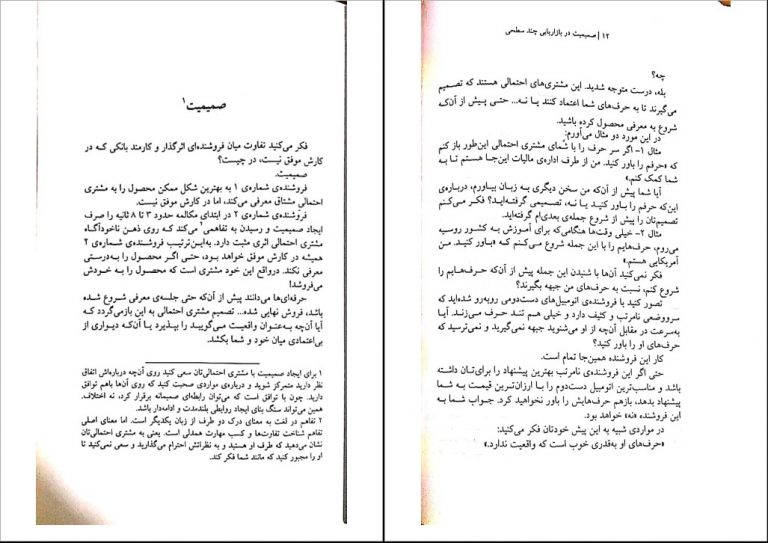 صمیمیت۱
فکر می‌کنید تفاوت میان فروشنده‌ای اثرگذار و کارمند بانکی که در
کارش موفق نیست، در چیست؟
صمیمیت.
فروشنده‌ی شماره‌ی ۱ به بهترین شکل ممکن محصول را به مشتری
احتمالی مشتاق معرفی می‌کند، اما در کارش موفق نیست.
فروشنده‌ی شماره‌ی ۲ در ابتدای مکالمه حدود ۳ تا ۸ ثانیه را صرف
ایجاد صمیمیت و رسیدن به تفاهمی۲ می‌کند که روی ذهن ناخودآگاه
مشتری احتمالی اثری مثبت دارد. به‌این‌ترتیب فروشنده‌ی شماره‌ی ۲
همیشه در کارش موفق خواهد بود، حتی اگر محصول را به‌درستی
معرفی نکند. درواقع این خود مشتری است که محصول را به خودش
می‌فروشد!
حرفه‌ای‌ها می‌دانند پیش از آن‌که حتی جلسه‌ی معرفی شروع شده
باشد، فروش نهایی شده... تصمیم مشتری احتمالی به این بازمی‌گردد که
آیا آن‌چه به‌عنوان واقعیت می‌گویید را بپذیرد یا آن‌که دیواری از
بی‌اعتمادی میان خود و شما بکشد.
۱ برای ایجاد صمیمیت با مشتری احتمالی‌تان سعی کنید روی آن‌چه درباره‌اش اتفاق
نظر دارید متمرکز شوید و درباره‌ی مواردی صحبت کنید که روی آن‌ها باهم توافق
دارید. چون با توافق است که می‌توان رابطه‌ای صمیمانه برقرار کرد، نه اختلاف.
همین می‌تواند سنگ بنای ایجاد روابطی بلندمدت و ادامه‌دار باشد.
۲ تفاهم در لغت به معنای درک دو طرف از زبان یکدیگر است. اما معنای اصلی
تفاهم شناخت تفاوت‌ها و کسب مهارت همدلی است. یعنی به مشتری احتمالی‌تان
نشان می‌دهید که طرف او هستید و به نظراتش احترام می‌گذارید و سعی نمی‌کنید تا
او را مجبور کنید که مانند شما فکر کند.
۱۲ | صمیمیت در بازاریابی چند سطحی
چه؟
بله، درست متوجه شدید. این مشتری‌های احتمالی هستند که تصمیم
می‌گیرند تا به حرف‌های شما اعتماد کنند یا نه... حتی پیش از آن‌که
شروع به معرفی محصول کرده باشید.
در این مورد دو مثال می‌آورم:
مثال ۱- اگر سر حرف را با شمای مشتری احتمالی این‌طور باز کنم
که «حرفم را باور کنید. من از طرف اداره‌ی مالیات این‌جا هستم تا به
شما کمک کنم.»
آیا شما پیش از آن‌که من سخن دیگری به زبان بیاورم، درباره‌ی
این‌که حرفم را باور کنید یا نه، تصمیمی گرفته‌اید؟ فکر می‌کنم
تصمیم‌تان را پیش از شروع جمله‌ی بعدی‌ام گرفته‌اید.
مثال ۲- خیلی وقت‌ها هنگامی‌که برای آموزش به کشور روسیه
می‌روم، حرف‌هایم را با این جمله شروع می‌کنم که «باور کنید. من
آمریکایی هستم.»
فکر نمی‌کنید آن‌ها با شنیدن این جمله پیش از آن‌که حرف‌هایم را
شروع کنم، نسبت به حرف‌های من جبهه بگیرند؟
تصور کنید با فروشنده‌ی اتومبیل‌های دست‌دومی روبه‌رو شده‌اید که
سرووضعی نامرتب و کثیف دارد و خیلی هم تند حرف می‌زند. آیا
به‌سرعت در مقابل آن‌چه از او می‌شنوید جبهه نمی‌گیرید و نمی‌ترسید که
حرف‌های او را باور کنید؟
کار این فروشنده همین‌جا تمام است.
حتی اگر این فروشنده‌ی نامرتب بهترین پیشنهاد را برای‌تان داشته
باشد و مناسب‌ترین اتومبیل دست‌دوم را با ارزان‌ترین قیمت به شما
پیشنهاد بدهد، بازهم حرف‌هایش را باور نخواهید کرد. جواب شما به
این فروشنده «نه» خواهد بود.
در مواردی شبیه به این پیش خودتان فکر می‌کنید:
«حرف‌های او به‌قدری خوب است که واقعیت ندارد.»